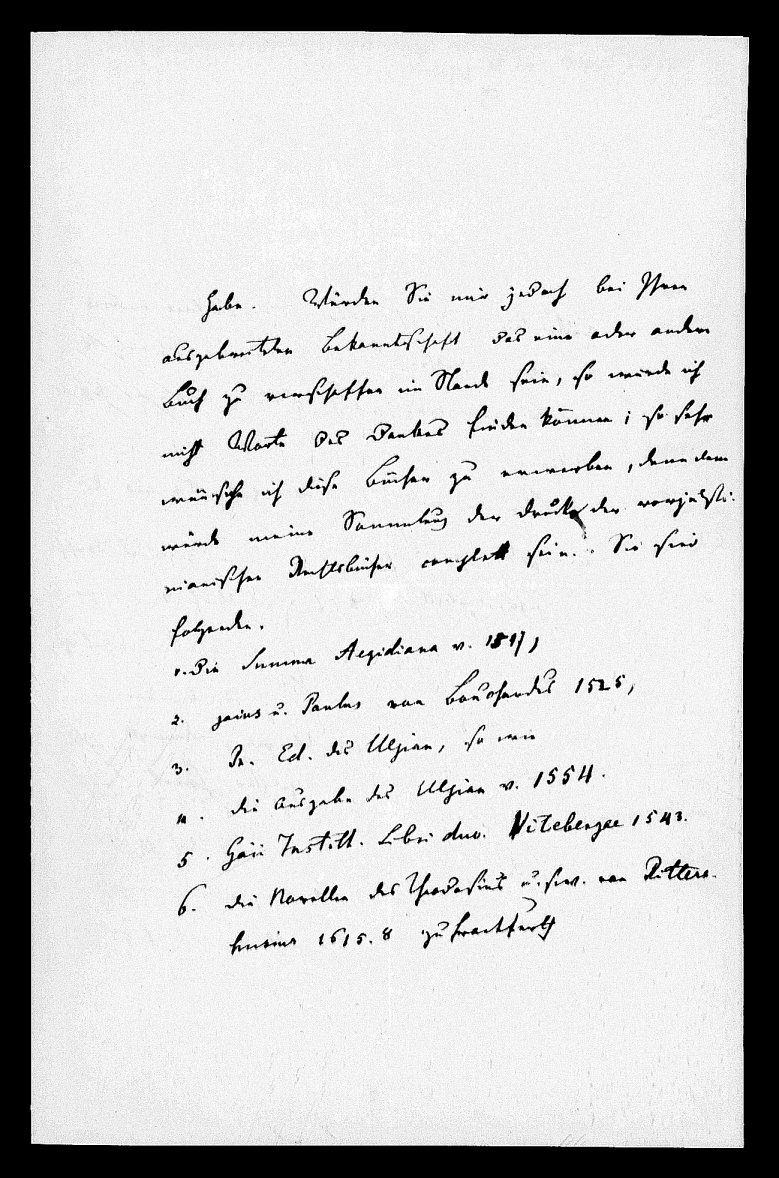 habe. Würden Sie mir jedoch bei Ihrer
ausgebreiteten Bekanntschaft das eine oder andere
Buch zu verschaffen im Stande sein, so würde ich
nicht Worte des Dankes finden können; so sehr
wünsche ich diese Bücher zu erwerben, denn dann
würde meine Sammlung der Drucke der vorjusti-
nianischen Rechtsbücher complett sein. Sie sind
folgende.
1. Die Summa Aegidiana v. 1517,
2. Gaius u. Paulus von Bouchardus 1525,
3. Ed. des Ulpian, so wie
4. die Ausgabe des Ulpian v. 1554.
5. Gaii Institt. Libri duo. Vitebergae 1543.
6. die Novellen des Theodosius u.s.w. von Ritters-
husius 1615. 8 zu Frankfurth